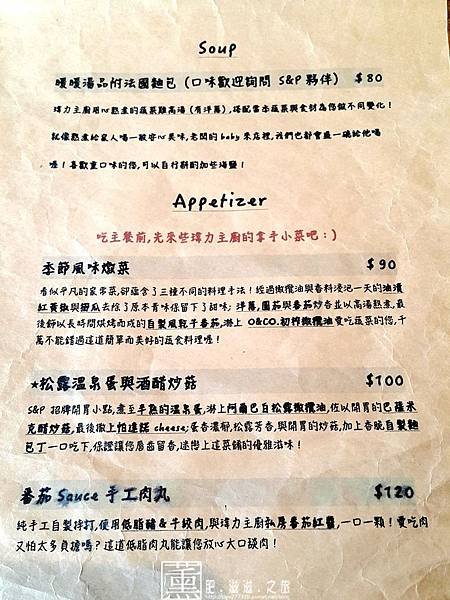 Soup
暖暖湯品附法國麵包 (口味歡迎詢問 S&P夥伴) $80
瑋力主廚用心熬煮的蔬菜雞高湯 (有洋蔥),搭配當季蔬菜與食材為您做不同變化!
就像熬煮給家人喝一般安心美味,老闆的baby來店裡,我們也都會盛一碗給他喝
喔!喜歡重口味的您,可以自行斟酌加些海鹽!
Appetizer
吃主餐前,先來些瑋力主廚的拿手小菜吧:)
季節風味燉菜 $90
看似平凡的家常菜,卻蘊含了三種不同的料理手法!經過橄欖油與香料浸泡一天的油漬
紅黃椒與櫛瓜去除了原本青味保留下了甜味; 洋蔥,茴茄與番茄炒香並以高湯熬煮,最
後飾以長時間烘烤而成的自製風乾牛番茄,淋上 O&CO.初榨橄欖油愛吃蔬菜的您,千
萬不能錯過這道簡單而美好的蔬食料理喔!
★松露溫泉蛋與酒醋炒菇 $100
S&P 招牌開胃小點,煮至半熟的溫泉蛋,淋上阿爾巴白松露橄欖油,佐以開胃的巴薩米
克醋炒菇,最後撒上帕達諾 cheese;蛋香濃郁,松露芳香,與開胃的炒菇,加上香脆自製麵
包丁一口吃下,保證讓您唇齒留香,迷戀上這菜餚的優雅滋味!
番茄 Sauce 手工肉丸 $120
純手工自製摔打,使用低脂豬&牛絞肉,與瑋力主廚私房番茄紅醬,一口一顆!愛吃肉
又怕太多負擔嗎?這道低脂肉丸能讓您放心大口談肉!
薰 肥.滋滋.之旅